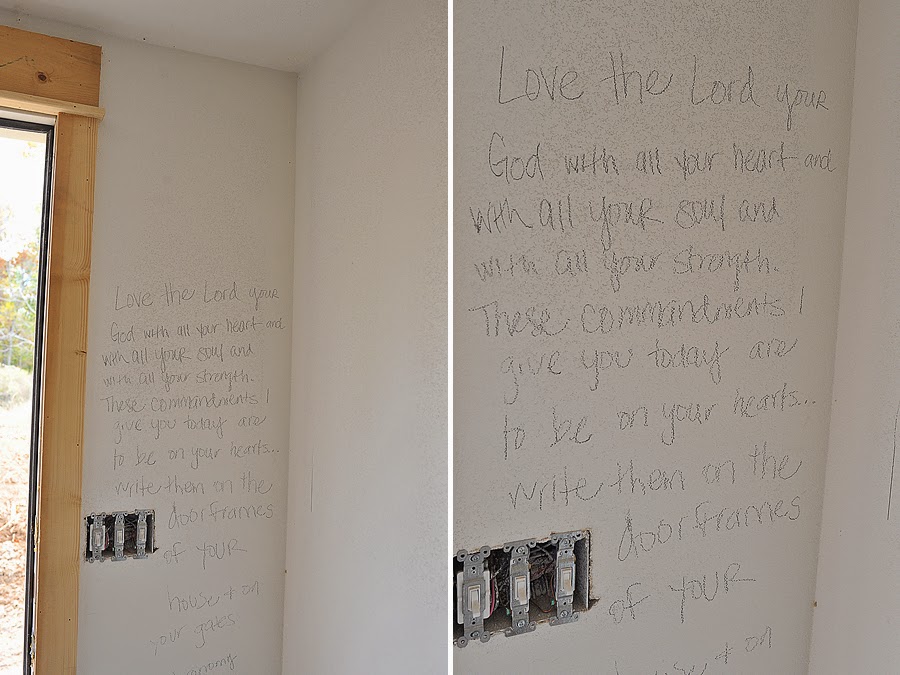 Love the Lord your
God with all your heart and
with all your soul and
with all your strength.
These commandments I
give you today are
to be on your hearts...
write them on the
doorframes
of your
house + on
your gates
Love the Lord your
God with all your heart and
with all your soul and
with all your strength.
These commandments I
give you today are
to be on your hearts...
write them on the
doorframes
of your
house + on